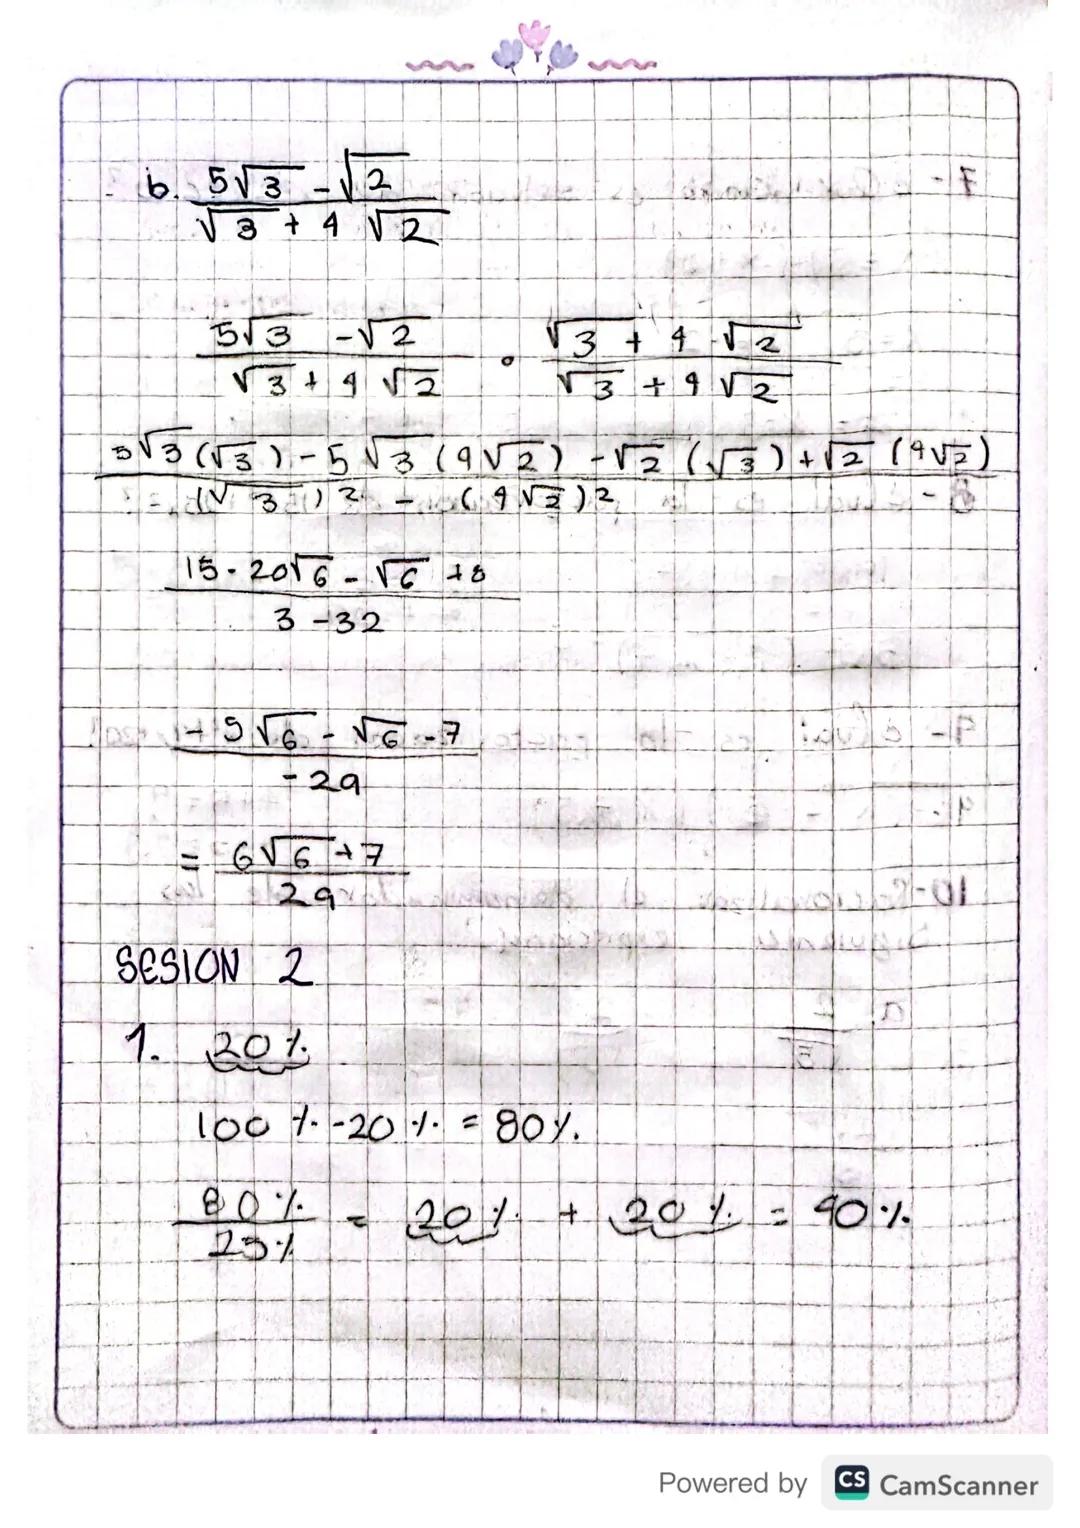 b. 5√3 - √2
√3 + 4 √2
5√3 - √2 · √3 + 4 √2
√3 + 4 √2 √3 + 4 √2
5√3 (√3) - 5√3 (4√2) - √2 (√3) + √2 (4√2)
(√3)2 - (4√2)2
15 - 20√6 - √6 + 8
3 - 32
+5√6 - √6 - 7
- 29
= 6√6 + 7
29
SESION 2
1. 20%
100% - 20% = 80%.
80% = 20% + 20% = 40%.
25%
Powered by CS CamScanner